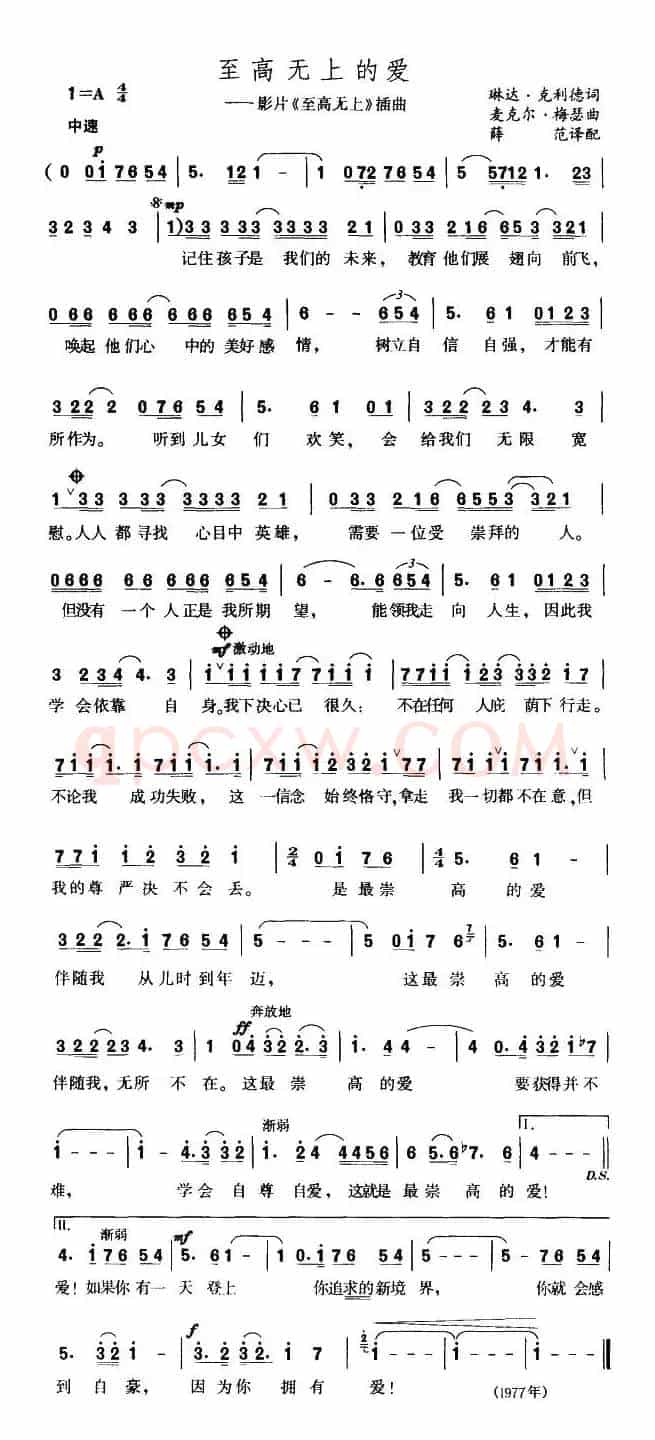 至高无上的爱
1=A 4/4
——影片《至高无上》插曲
琳达·克利德词
麦克尔·梅瑟曲
薛 范译配
中速
p
(0 0i 7654 | 5. 121 - | 1 0727654 | 5 57121. 23
mp
32343 1) 33 333 3333 21 | 033 216 653 321 |
记住孩子是 我们的 未来, 教育他们展 翅向 前飞,
066 666 6666 654 | 6 - - 654 | 5. 61 0123 |
唤起 他们心 中的 美好感 情, 树立自 信 自强, 才能有
3222 07654 | 5. 61 01 | 3222 2234. 3
所作为。 听到 儿女 们 欢笑, 会 给我们 无限 宽
1 33 333 3333 21 | 033 216 6553 321 |
慰。人人 都寻找 心目中 英雄, 需要 一位受 崇拜的 人。
0666 666 6666 654 | 6 - 6. 6654 | 5. 61 0123 |
但没有 一个 人正是 我所期 望, 能领我走 向 人生, 因此我
mf 激动地
3 2344. 3 | i iiii7 7iii | 77ii i23 332 i7 |
学 会依靠 自 身。我下决心已 很久: 不在任何 人庇 荫下 行走。
不论我 成功失败, 这 一信念 始终恪守,拿走 我一切都 不在意,但
77i i2 32 i | 2/4 0i 76 | 4/4 5. 61 - |
我的尊 严决 不会 丢。 是最崇 高 的爱
3222. i 7654 | 5 - - - | 5 0i 7 6 | 5. 61 - |
伴随我 从儿时到年 迈, 这最 崇 高 的爱
奔放地
ff
伴随我,无所 不 在。这最 崇 高 的爱 要获得并不
渐弱
I.
D.S.
难, 学会 自尊 自爱,这就是 最崇 高 的 爱!
II.
渐弱
mf
4. i76 54 | 5. 61 - | 10. i76 54 | 5 - - - | 5 0i76 54 |
爱!如果你 有一 天 登上 你追求的新境 界, 你就 会感
f
5. 32i | 3. 232. i7 | i - - - | i - i - | i - - - ‖
到 自豪, 因为你 拥有 爱!
(1977年)
qpcxw.COM